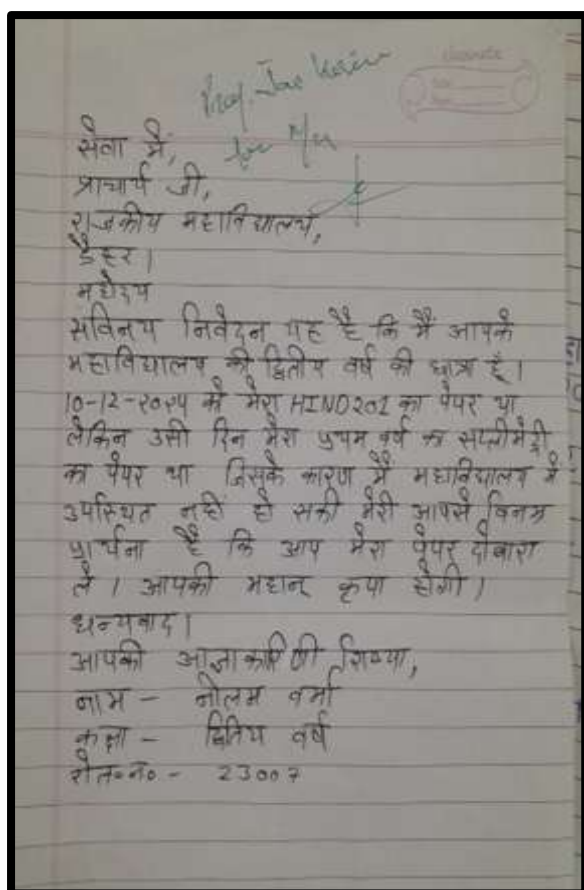 Prof.
for
सेवा में,
प्राचार्य जी,
राजकीय महाविद्यालय,
डैहर।
महोदय
सविनय निवेदन यह है कि मैं आपके
महाविद्यालय की द्वितीय वर्ष की छात्रा हूँ।
10-12-२०२५ को मेरा HIND201 का पेपर था
लेकिन उसी दिन मेरा प्रथम वर्ष का सप्लीमेंट्री
का पेपर था जिसके कारण मैं महाविद्यालय में
उपस्थित नहीं हो सकी मेरी आपसे विनम्र
प्रार्थना है कि आप मेरा पेपर दोबारा
ले। आपकी महान् कृपा होगी।
धन्यवाद।
आपकी आज्ञाकारिणी शिष्या,
नाम - नीलम वर्मा
कक्षा - द्वितिय वर्ष
रोल०न० - 23007